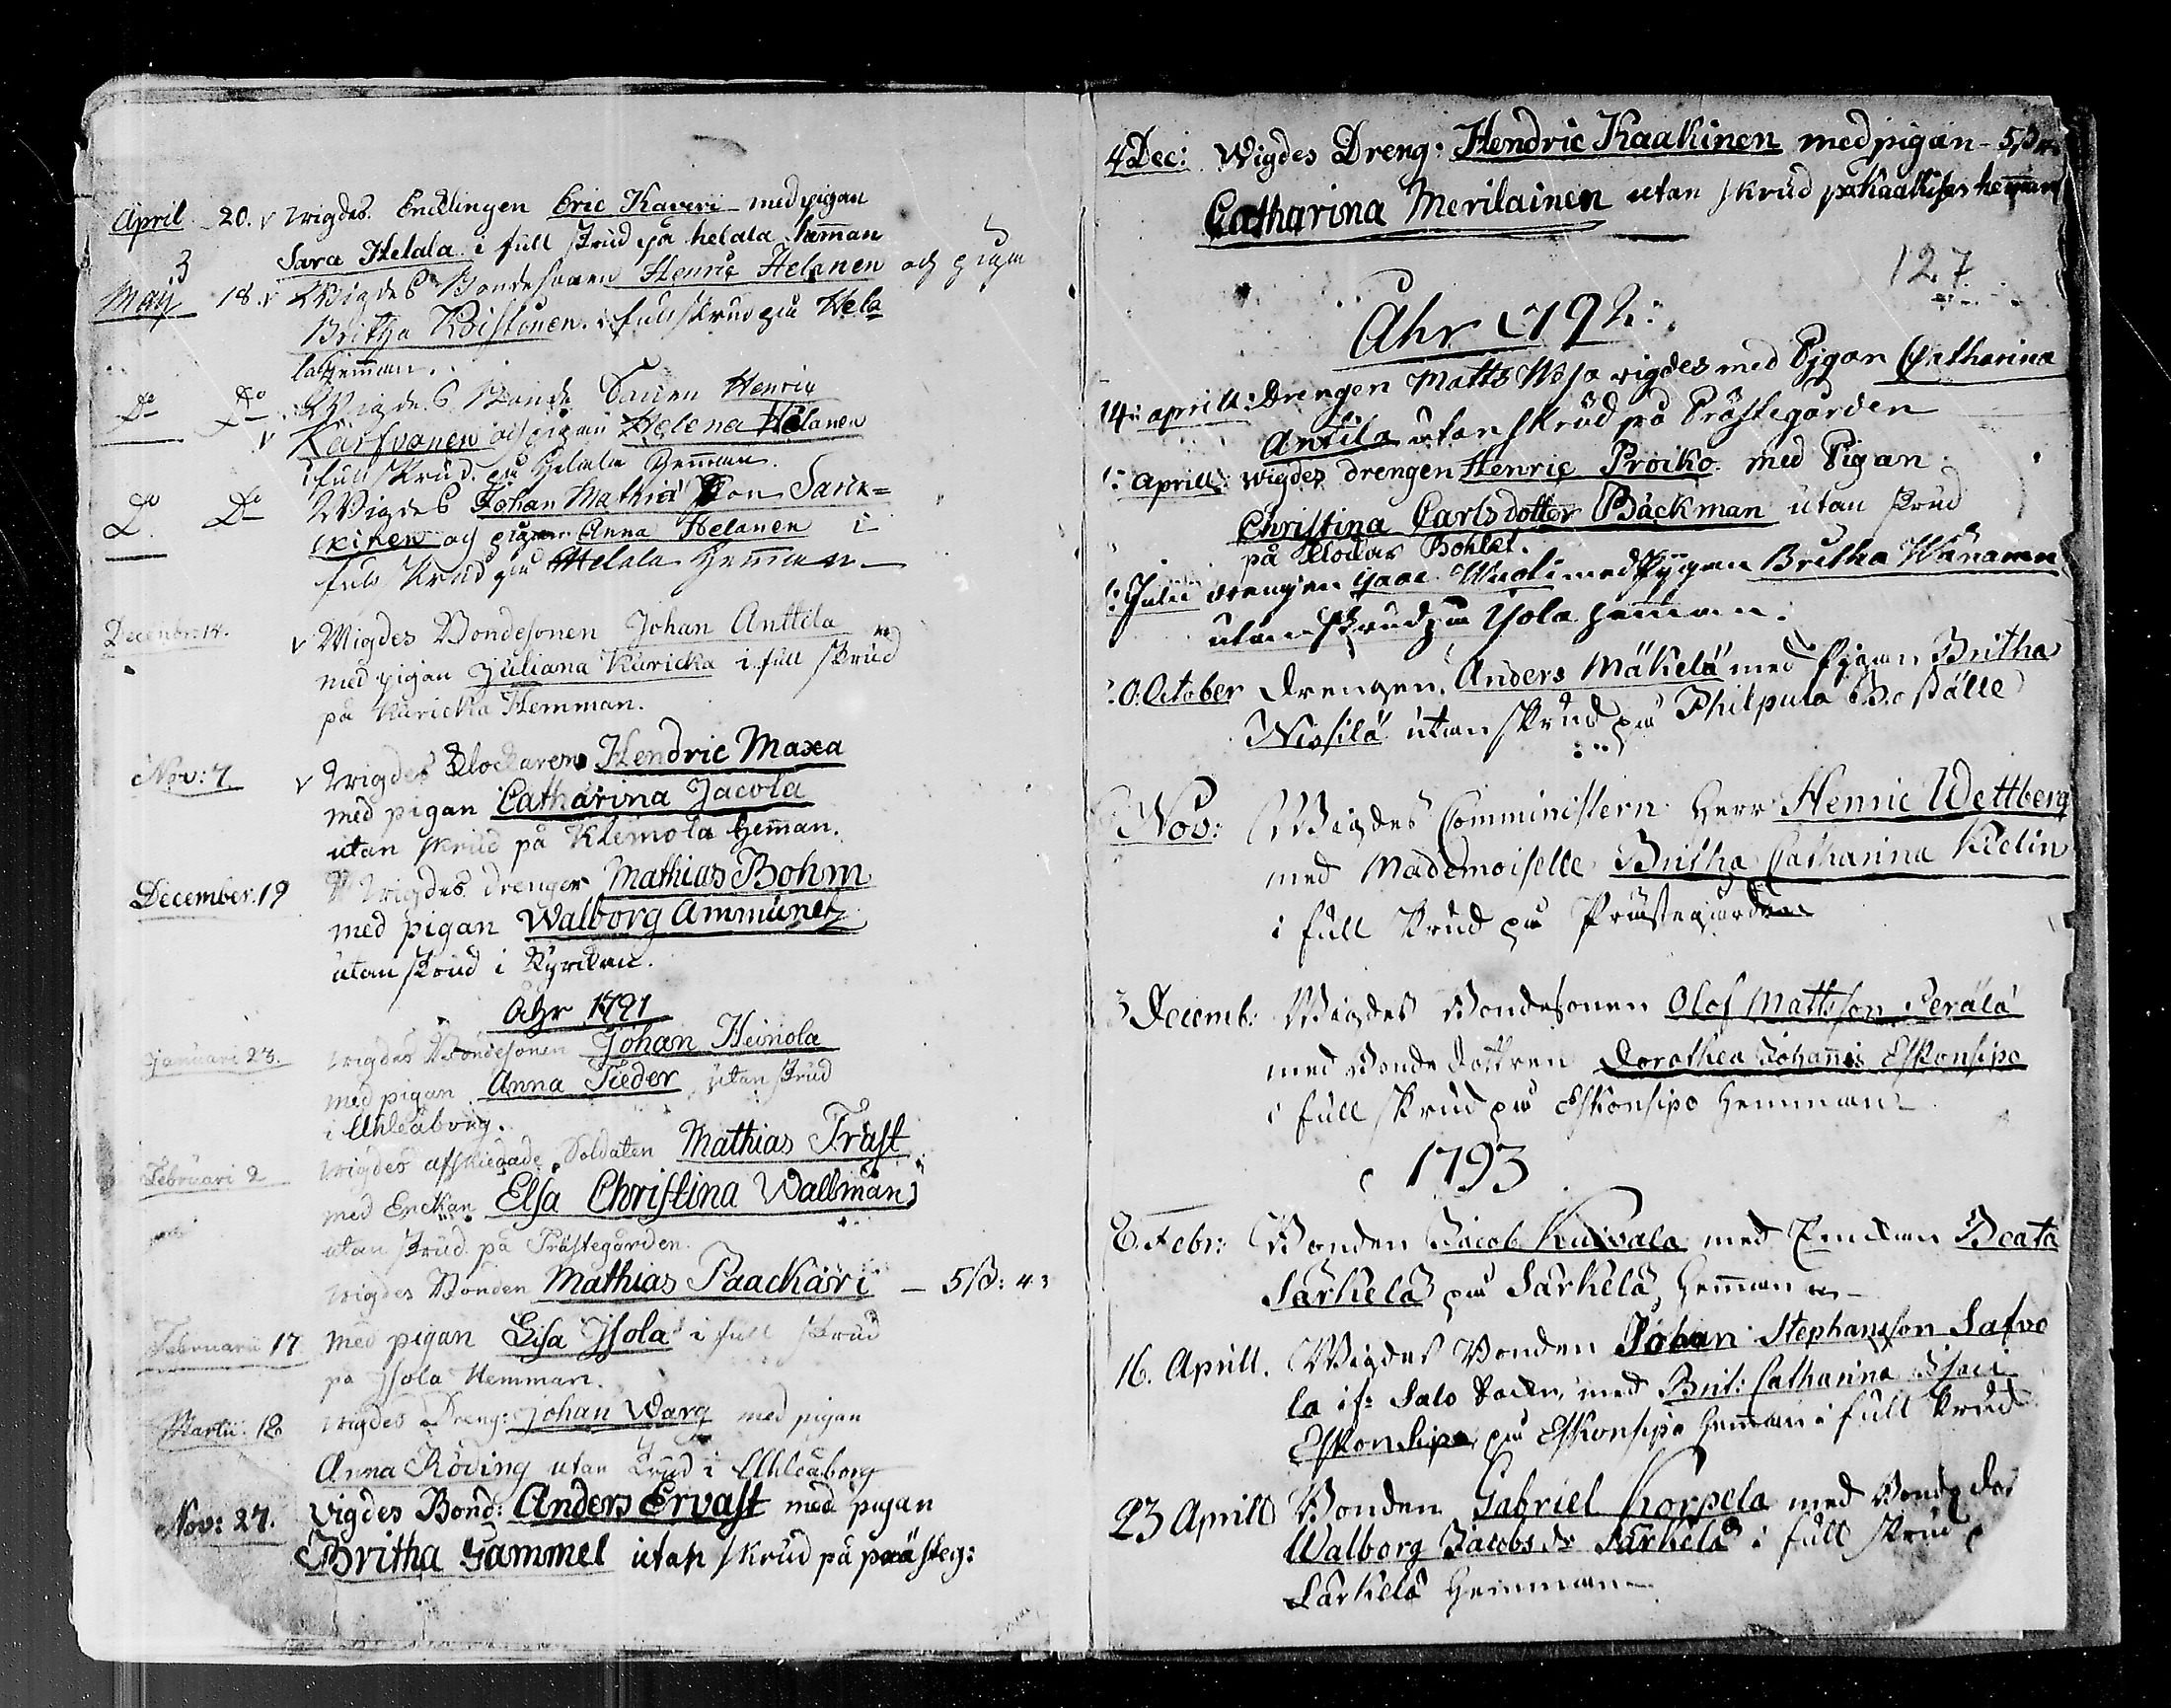 April 20. v wigdes Encklingen Eric Kaveri med pigan
Sara Helala i full skrud på helala hem̄an
3
Maij 18. v Wigdes Bondesonen Henric Helanen och pigan
Britha Koistonen i full skrud på Hela
la hem̄an.
Do Do Wigdes Bonde Sonen Henric
v Karfvonen och pigan Helena Helanen
i full skrud på Helala Hem̄an.
Do Do Wigdes Johan Mathiæ Son Sark=
kinen och pigan Anna Helanen i
full skrud på Helala Hem̄an
Decembr: 14. v Wigdes Bondesonen Johan Anttila
med pigan Juliana Kuricka i full skrud
på Kuricka Hemman.
Nov: 7 v wigdes Klockaren Hendric Maxa
med pigan Catharina Jacola
utan skrud på Klemola hem̄an.
December. 19 wigdes drengen Mathias Bohm
med pigan Walborg Ammunet
utan skrud i Kyrckan.
Åhr 1791
Januari 23. wigdes Bondesonen Johan Heinola
med pigan Anna Tieder utan skrud
i Uhleåborg.
Februari 2 wigdes afskiedade Soldaten Mathias Trast
med Enckan Elsa Christina Wallman
utan skrud på Prästegården.
wigdes Bonden Mathias Paackari — 5 ß: 4:
Februarii 17 med pigan Lisa Isola i full skrud
på Isola Hemman.
Martii. 18 wigdes Dreng: Johan Warg med pigan
Anna Röding utan skrud i Uhleåborg
Nov: 27. vigdes Bond: Anders Ervast med pigan
Britha Gammel utan skrud på prästeg:
4 Dec: wigdes Dreng: Hendric Kaakinen med pigan - 5 ß
Catharina Merilainen utan skrud på Kaakisen hem̄an
127
Åhr 1792:
14: aprill: Drengen Matts Wesa vigdes med Pigan Catharina
Antila utan skrud på Prästegården
aprill: wigdes drengen Henric Proiko med Pigan
Christina Carlsdotter Bäckman utan skrud
på Klockar Bohlet.
Julii drengen Isaac Wuoti med Pigan Britha Wänänen
utan skrud på Ysola hem̄an.
October Drengen Anders Mäkelä med Pigan Britha
Nissilä utan skrud på Philpula Boställe
Nov: Wigdes Comministern Herr Henric Wettberg
med Mademoiselle Britha Catharina Kielin
i full skrud på Prästegården
3 Decemb: Wigdes Bondesonen Olof Mattsson Perälä
med Bonde dottren Dorothea Johannis Eskonsipo
i full skrud på Eskonsipo hemman
1793
8. Febr: Bonden Jacob Kuivala med Enckan Beata
Särkelä på Särkelä hem̄an
16. Aprill. Wigdes Bonden Johan Stephansson Safvo
la if: Salo Sockn, med Brit: Catharina Isaci
Eskonsipo på Eskonsipo hem̄an i full skrud
23 Aprill Bonden Gabriel Korpela med Bonde do
Walborg Jacobs dr Särkelä i full skrud
Särkelä Hemman